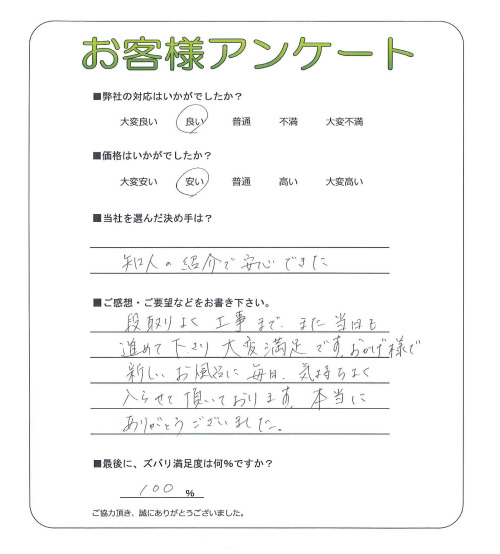 お客様アンケート
■弊社の対応はいかがでしたか？
大変良い 良い 普通 不満 大変不満
■価格はいかがでしたか？
大変安い 安い 普通 高い 大変高い
■当社を選んだ決め手は？
知人の紹介で安心できた
■ご感想・ご要望などをお書き下さい。
段取りよく工事まで、また当日も
進めて下さり大変満足です。おかげ様で
新しいお風呂に毎日、気持ちよく
入らせて頂いております。本当に
ありがとうございました。
■最後に、ズバリ満足度は何％ですか？
100 %
ご協力頂き、誠にありがとうございました。